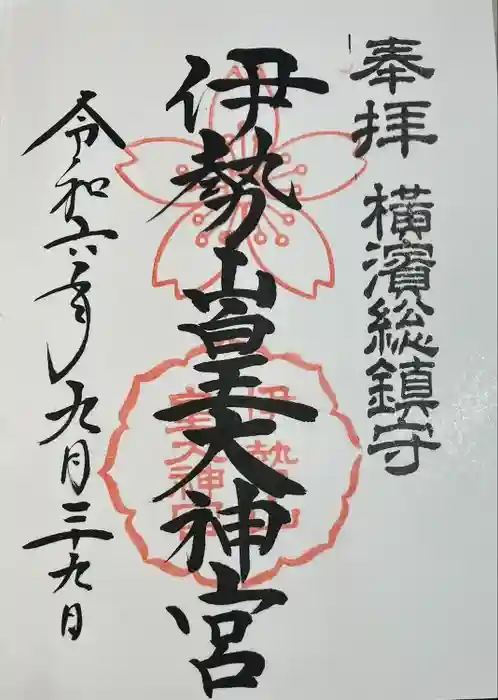 奉拝 横濱総鎮守
伊勢山皇大神宮
伊勢山皇大神宮
令和六年九月二十九日